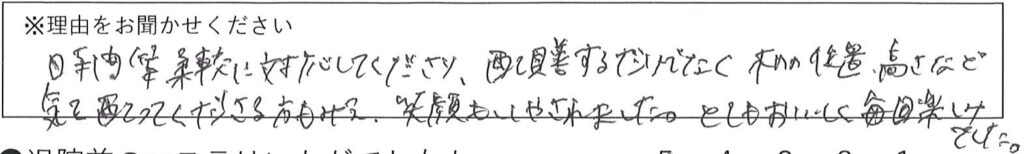 ※理由をお聞かせください
時間等柔軟に対応してくださり、配膳するだけでなく 机の位置、高さなど
気を配ってくださる方もみえ、笑顔もいやされました。とてもおいしく毎回楽しみ
でした。
5 4 3 2 1